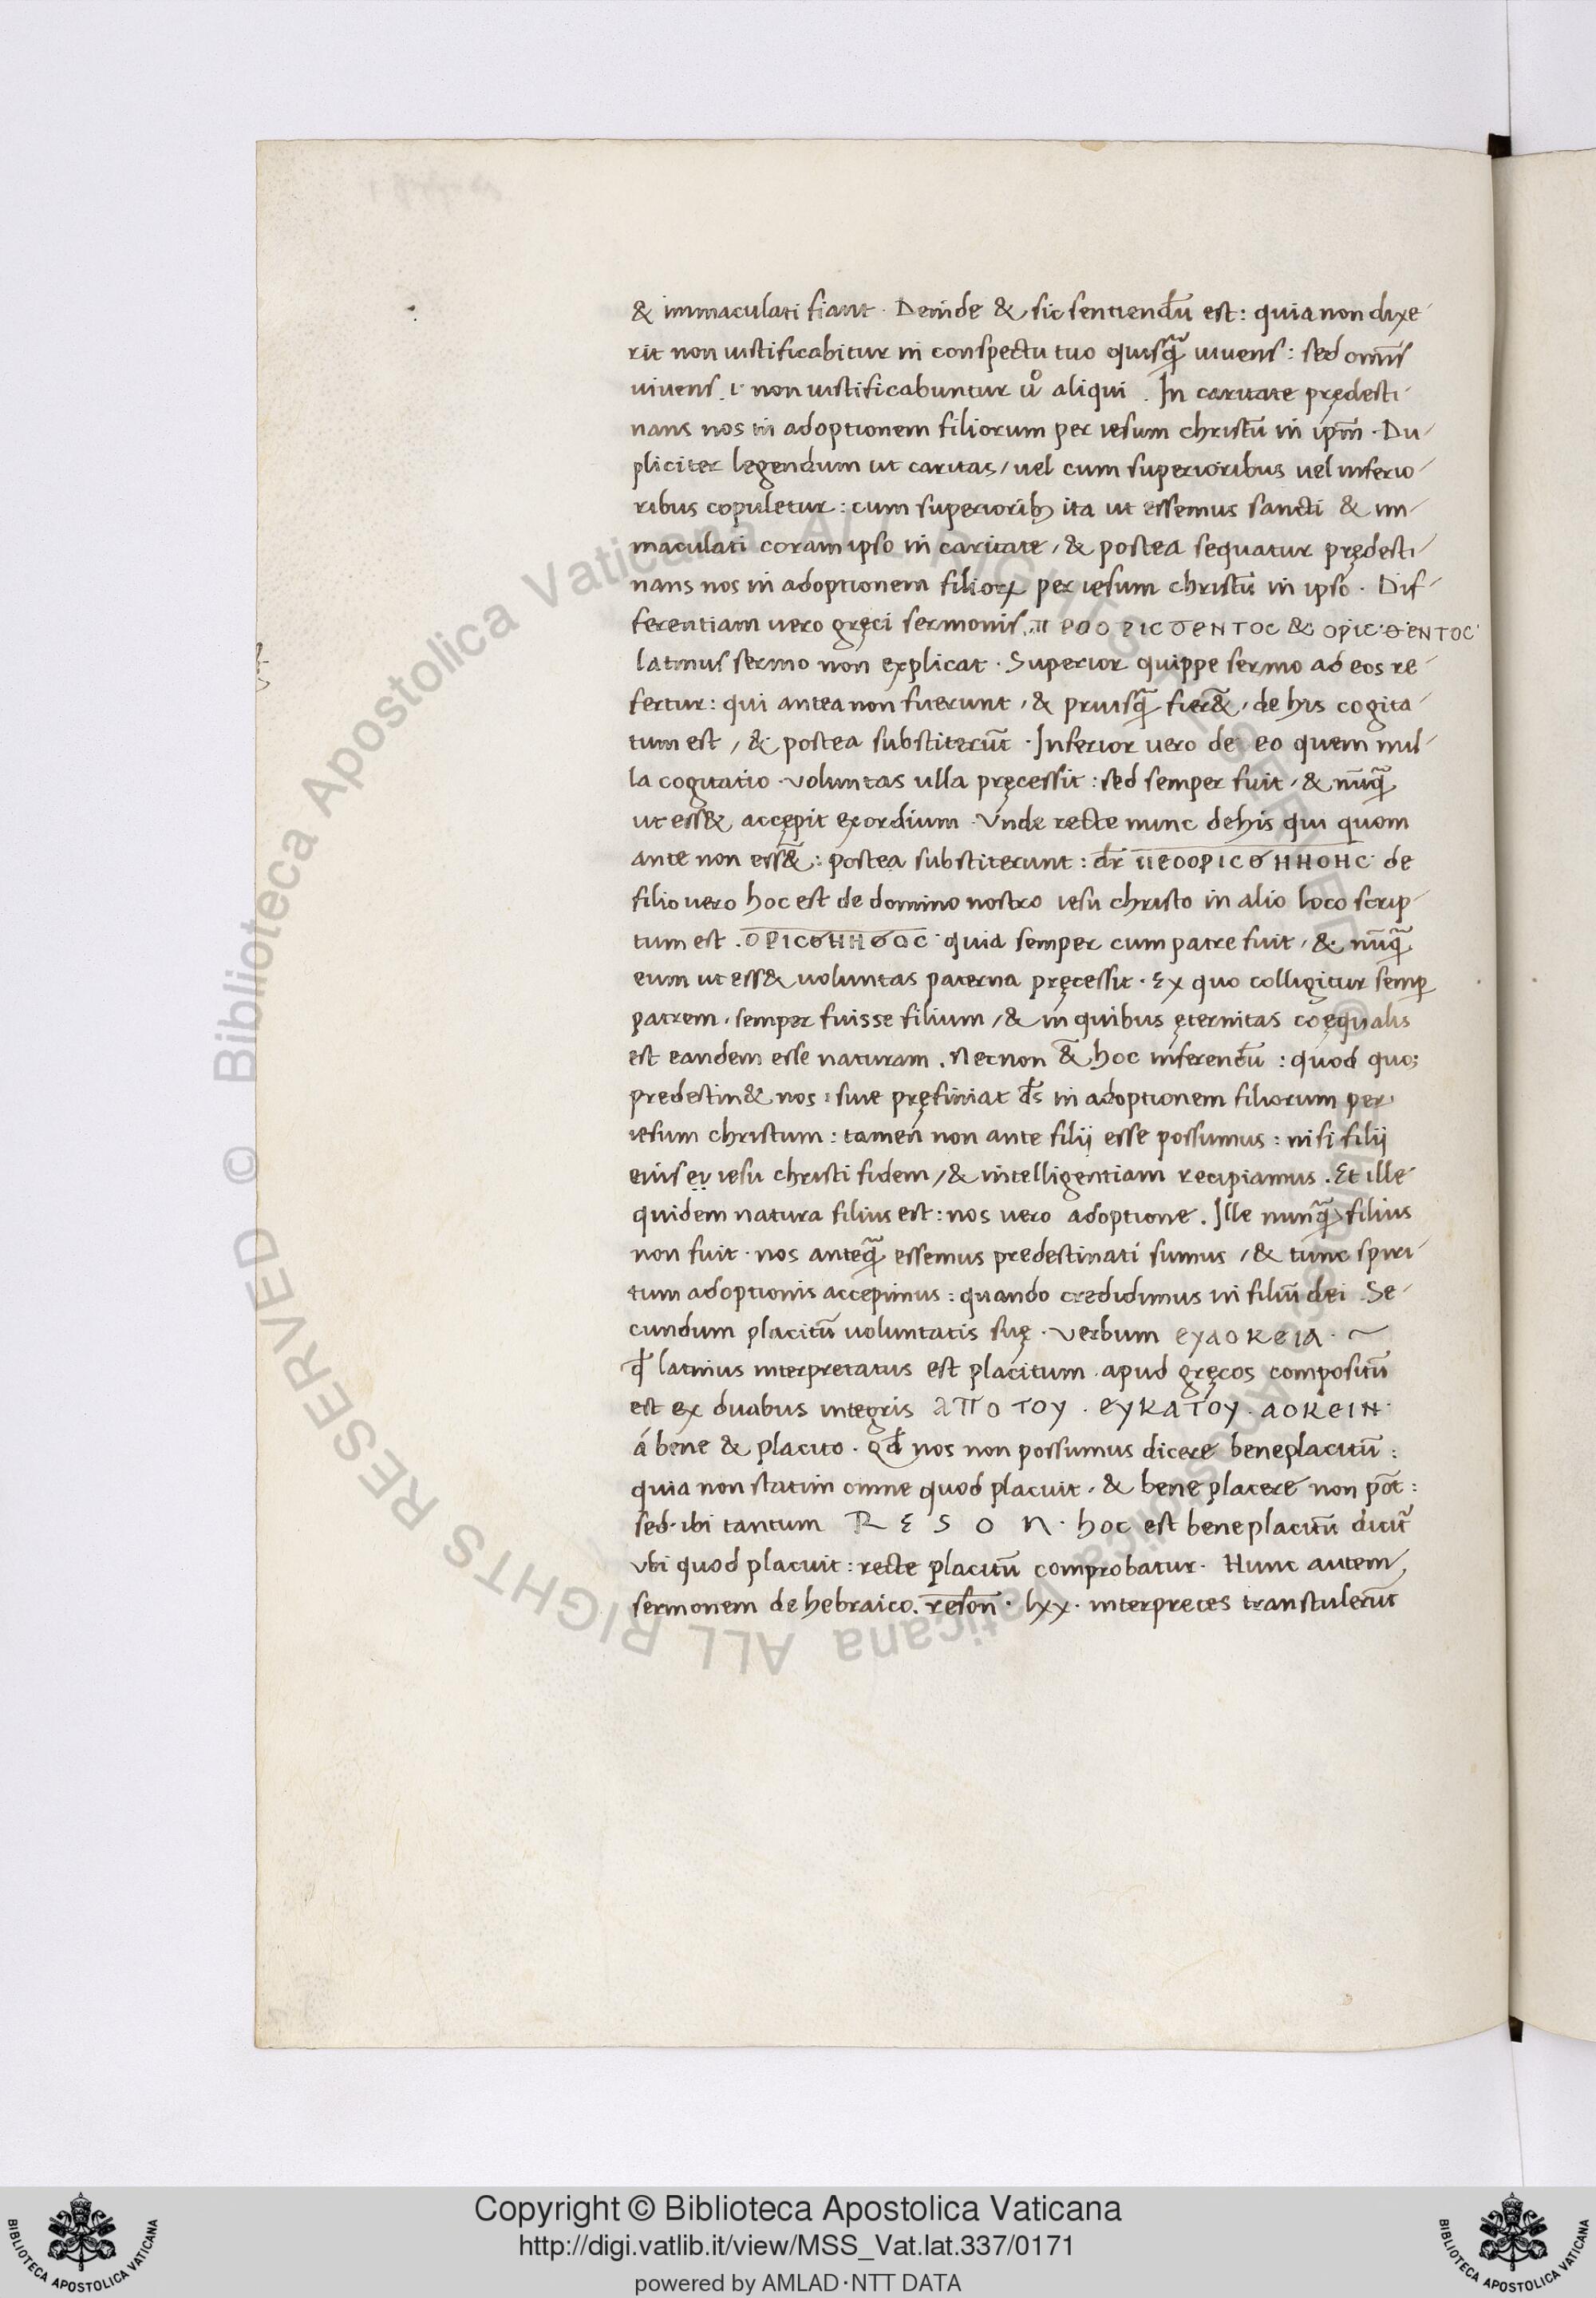 & immaculati fiant · Deinde & sic sentiendũ est : quia non dixe-
rit non iustificabitur in conspectu tuo quisq̃ uiuens : sed om̃is
vivens . i· non iustificabuntur uͦ aliqui . In caritate prędesti-
nans nos in adoptionem filiorum per iesum christũ in ip̃m · Du-
pliciter legendum ut caritas / vel cum superioribus uel inferio-
ribus copuletur : cum superiorib; ita ut essemus sancti & im-
maculati coram ipso in caritate / & postea sequatur prędesti-
nans nos in adoptionem filioꝝ per iesum christũ in ipso · Dif-
ferentiam vero gręci sermonis . π ΕΟΟ ΡΙCΟΕΝΤΟC & ΟΡΙC·Θ·ΕΝΤΟC·
latinus sermo non explicat · Superior quippe sermo ad eos re-
fertur : qui antea non fuerunt / & priusq̃ fier&̃ / de his cogita-
tum est / & postea substiterũt · Inferior vero de eo quem nul-
la cogitatio · voluntas ulla pręcessit : sed semper fuit / & nũq̃
ut ess& accępit exordium · Vnde recte nunc de his qui quom
ante non ess&̃ : postea substiterunt : dr̃ πΕΟΟΡΙCΘΗΗΟΗC· de
filio vero hoc est de domino nostro iesu christo in alio loco scrip-
tum est . ΟΡΙCΘΗΗΘΟC· quia semper cum patre fuit / & nũq̃
eum ut ess& voluntas paterna pręcessit · Ex quo colligitur semꝑ
patrem · semper fuisse filium / & in quibus ęternitas coęqualis
est eandem esse naturam . Necnon &̃ hoc inferendũ : quod quo;
predestin& nos : siue pręfiniat d̃s in adoptionem filiorum per
iesum christum : tamen non ante filij esse possumus : nisi filij
eius eiꝰ iesu christi fidem / & intelligentiam recipiamus . Et ille
quidem natura filius est : nos vero adoptione . Ille nunq̃ filius
non fuit · nos anteq̃ essemus predestinati sumus / & tunc spiri-
tum adoptionis accepimus : quando credidimus in filiũ dei . Se-
cundum placitũ voluntatis suę · verbum ΕΥΔΟΚΕΙΑ · ~
qđ latinus interpretatus est placitum . apud gręcos compositũ
est ex duabus integris ΑΠΟ ΤΟΥ · ΕΥΚΑΤΟΥ · ΔΟΚΕΙΗ·
á bene & placito · Qđ nos non possumus dicere beneplacitũ :
quia non statim omne quod placuit / & bene placere non põt :
sed ibi tantum R E S O N · hoc est beneplacitũ dicit᷑
vbi quod placuit : recte placitũ comprobatur · Hunc autem
sermonem de hebraico . reson̄ · lxx · interpretes transtulerũt
Copyright © Biblioteca Apostolica Vaticana
http://digi.vatlib.it/view/MSS_Vat.lat.337/0171
powered by AMLAD·NTT DATA
BIBLIOTECA APOSTOLICA VATICANA
BIBLIOTECA APOSTOLICA VATICANA
© Biblioteca Apostolica Vaticana ALL RIGHTS RESERVED
© Biblioteca Apostolica Vaticana ALL RIGHTS RESERVED